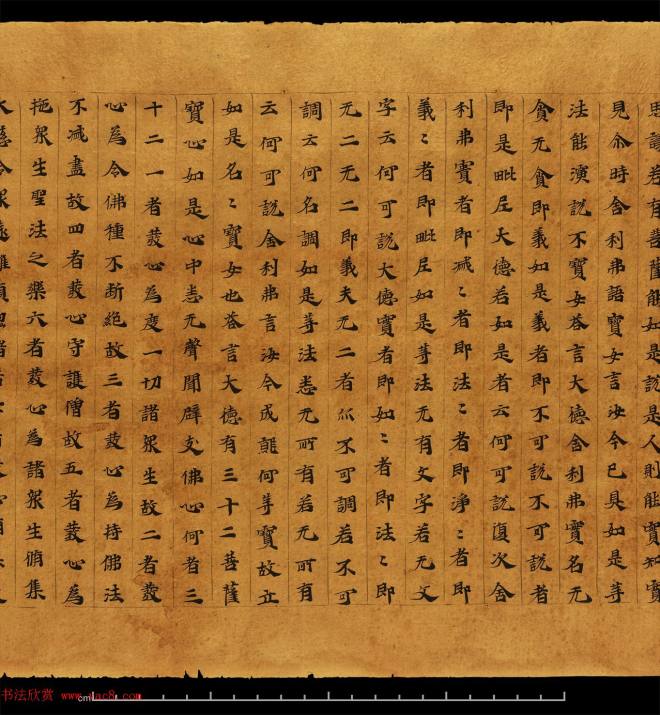 思議若有菩薩能如是說是人則能實知實
見尒時舍利弗語寶女言汝今已具如是等
法能演說不寶女荅言大德舍利弗寶名无
貪无貪即義如是義者即不可說不可說者
即是毗尼大德若如是者云何可說復次舍
利弗寶者即滅〻者即法〻者即淨〻者即
義〻者即毗尼如是等法无有文字若无文
字云何可說大德寶者即如〻者即法〻即
无二无二即義夫无二者不可調若不可
調云何名調如是等法悉无所有若无所有
云何可說舍利弗言汝今成就何等寶故立
如是名〻寶女也荅言大德有三十二菩薩
寶心如是心中悉无聲聞辟支佛心何者三
十二一者發心為度一切諸眾生故二者發
心為令佛種不斷絕故三者發心為持佛法
不滅盡故四者發心守護僧故五者發心為
拖眾生聖法之樂六者發心為諸眾生脩集
书法欣赏 www.
cm